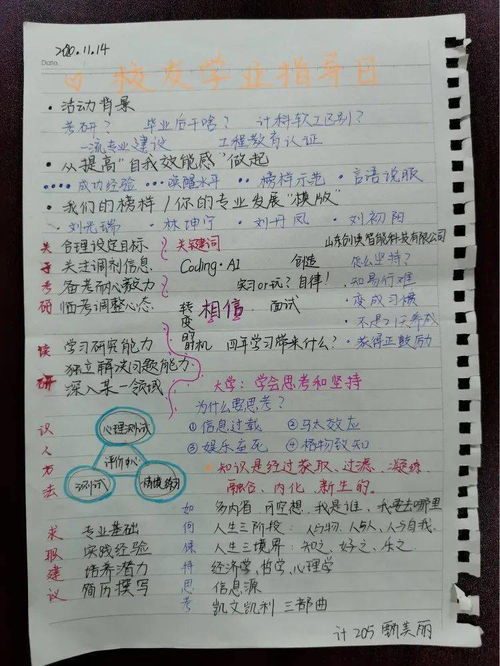 2020.11.14
Date
校友学业指导日
· 活动背景
考研? 毕业后干啥? 计科软工区别?
一流专业建设 工程教育认证
· 从提高“自我效能感”做起
成功经验 唤醒水平 榜样示范 言语说服
· 我们的榜样 / 你的专业发展“模版”
刘光瑞 林坤宁 刘丹凤 刘初阳
关于考研
合理设定目标
关注调剂信息
备考耐心毅力
师考调整心态
关键词
Coding · AI 创造
实习or玩? 自律!
转变的时机
相信 面试
四年学习带来什么?
山东创唤智能科技有限公司
怎么坚持?
· 知易行难
· 变成习惯
· 不是21天养成
· 获得正鼓励
读研
学习研究能力
独立解决问题能力
深入某一领域
大学: 学会思考和坚持
为什么要思考?
① 信息过载 ② 马太效应
③ 娱乐至死 ④ 格物致知
· 知识是经过获取、过滤、凝练、
融合、内化、新生的。
识人方法
心理测试
评价中心
面试
情境模拟
求职建议
专业基础
实践经验
培养潜力
简历撰写
如何保持思考
多内省, 可空想, 我是谁, 我要去哪里
人生三阶段: 人与物、人与人、人与自我.
人生三境界: 知之、好之、乐之.
经济学、哲学、心理学
信息源
凯文凯利 三部曲
计205 甄美丽